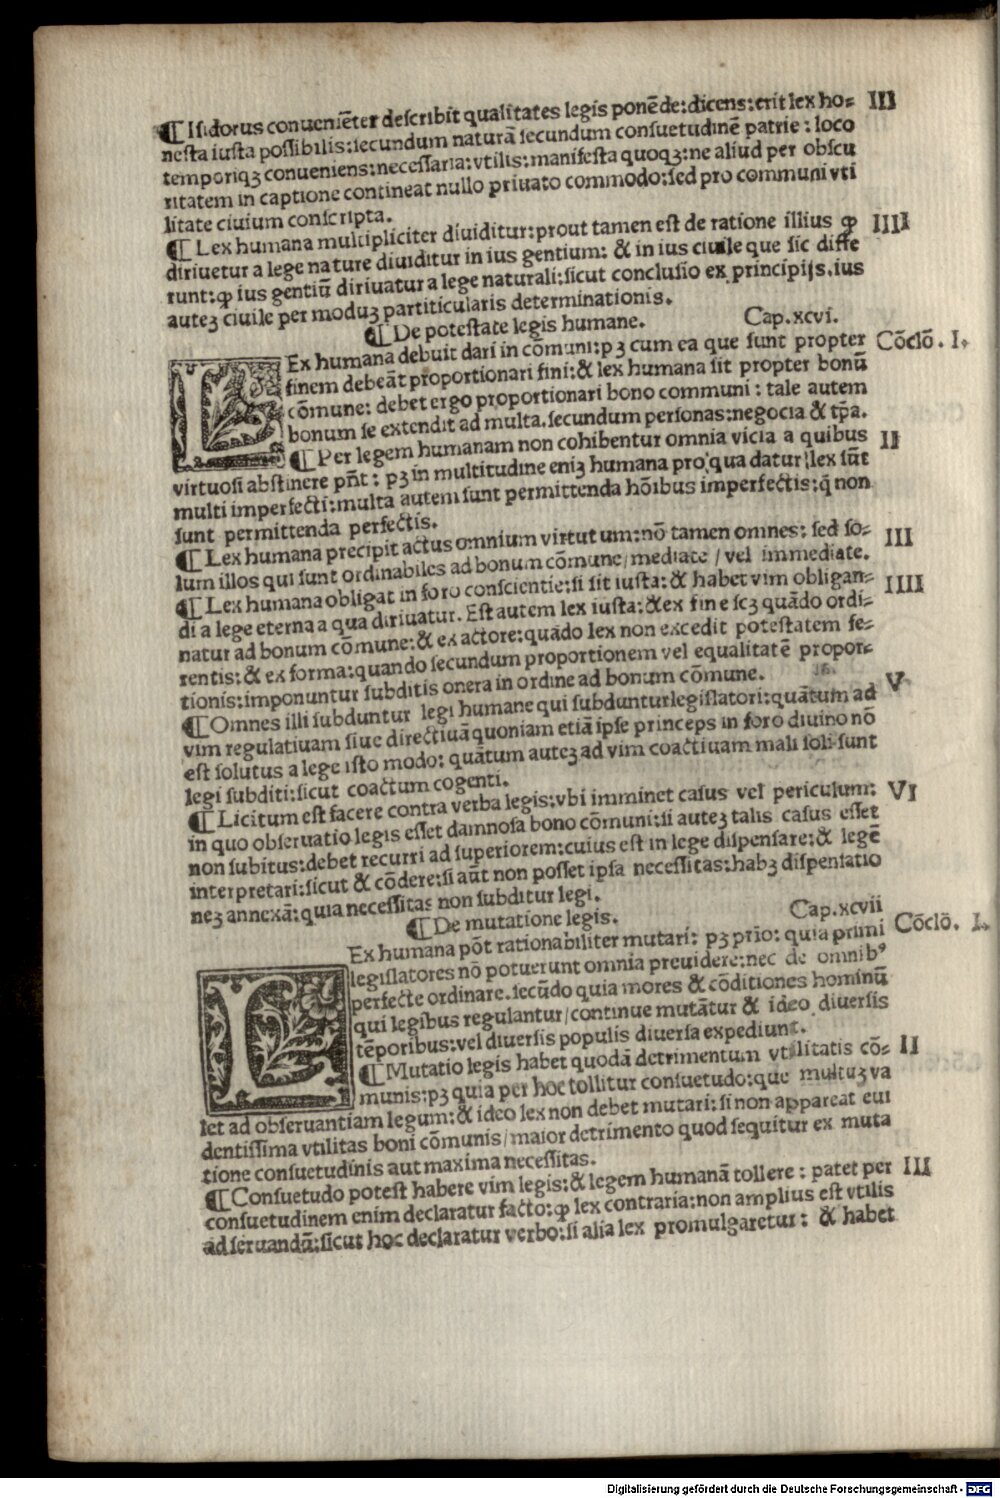 ¶ Isidorus conueniẽter describit qualitates legis ponẽde: dicens: erit lex ho= III
nesta iusta possibilis: secundum naturã secundum consuetudinẽ patrie: loco
temporiqꝫ conueniens: necessaria: vtilis: manifesta quoqꝫ: ne aliud per obscu
ritatem in captione contineat nullo priuato commodo: sed pro communi vti
litate ciuium conscripta.
¶ Lex humana multipliciter diuiditur: prout tamen est de ratione illius ꝙ IIII
diriuetur a lege nature diuiditur in ius gentium: & in ius ciuile que sic diffe
runt: ꝙ ius gentiũ diriuatur a lege naturali: sicut conclusio ex principijs. ius
auteꝫ ciuile per moduꝫ partiticularis determinationis.
¶ De potestate legis humane. Cap. xcvi.
LEx humana debuit dari in cõmuni: pꝫ cum ea que sunt propter Cõclõ. I.
finem debeãt proportionari fini: & lex humana sit propter bonũ
cõmune: debet ergo proportionari bono communi: tale autem
bonum se extendit ad multa. secundum personas: negocia & tp̃a.
¶ Per legem humanam non cohibentur omnia vicia a quibus II
virtuosi abstinere pñt: pꝫ in multitudine eniꝫ humana pro qua datur lex sũt
multi imperfecti: multa autem sunt permittenda hõibus imperfectis: q̃ non
sunt permittenda perfectis.
¶ Lex humana precipit actus omnium virtut um: nõ tamen omnes: sed so= III
lum illos qui sunt ordinabiles ad bonum cõmune/ mediate / vel immediate.
¶ Lex humana obligat in foro conscientie: si sit iusta: & habet vim obligan= IIII
di a lege eterna a qua diriuatur. Est autem lex iusta: & ex fine scꝫ quãdo ordi=
natur ad bonum cõmune: & ex actore: quãdo lex non excedit potestatem fe=
rentis: & ex forma: quando secundum proportionem vel equalitatẽ propor=
tionis: imponuntur subditis onera in ordine ad bonum cõmune.
¶ Omnes illi subduntur legi humane qui subdunturlegislatori: quãtum ad V
vim regulatiuam siue directiuã quoniam etiã ipse princeps in foro diuino nõ
est solutus a lege isto modo: quãtum auteꝫ ad vim coactiuam mali soli sunt
legi subditi: sicut coactum cogenti.
¶ Licitum est facere contra verba legis: vbi imminet casus vel periculum: VI
in quo obseruatio legis esset damnosa bono cõmuni: si auteꝫ talis casus esset
non subitus: debet recurri ad superiorem: cuius est in lege dispensare: & legẽ
interpretari: sicut & cõdere: si aũt non posset ipsa necessitas: habꝫ dispensatio
neꝫ annexã: quia necessitas non subditur legi.
¶ De mutatione legis. Cap. xcvii
LEx humana põt rationabiliter mutari: pꝫ prĩo: quia primi Cõclõ. I.
legislatores nõ potuerunt omnia preuidere: nec de omnibꝰ
perfecte ordinare. secũdo quia mores & cõditiones hominũ
qui legibus regulantur/ continue mutãtur & ideo diuersis
tẽporibus: vel diuersis populis diuersa expediunt.
¶ Mutatio legis habet quodã detrimentum vtilitatis cõ= II
munis: pꝫ quia per hoc tollitur consuetudo: que multuꝫ va
let ad obseruantiam legum: & ideo lex non debet mutari: si non appareat eui
dentissima vtilitas boni cõmunis/ maior detrimento quod sequitur ex muta
tione consuetudinis aut maxima necessitas.
¶ Consuetudo potest habere vim legis: & legem humanã tollere: patet per III
consuetudinem enim declaratur facto: ꝙ lex contraria: non amplius est vtilis
ad seruandã: sicut hoc declaratur verbo: si alia lex promulgaretur: & habet
Digitalisierung gefördert durch die Deutsche Forschungsgemeinschaft - DFG